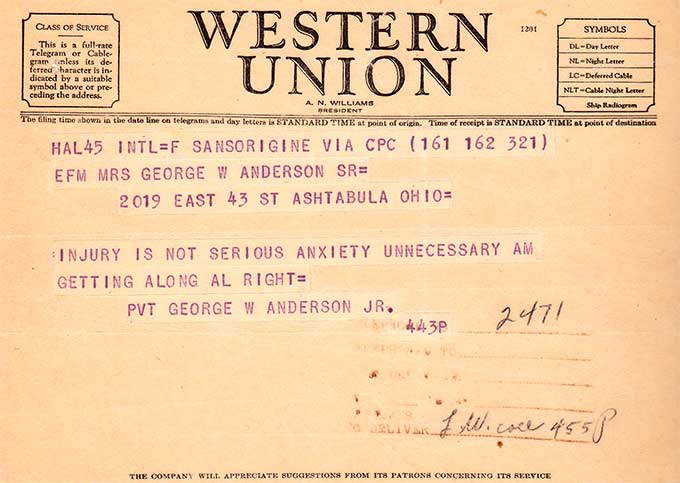 CLASS OF SERVICE
This is a full-rate
Telegram or Cable-
gram unless its de-
ferred character is in-
dicated by a suitable
symbol above or pre-
ceding the address.
WESTERN
UNION
1201
A. N. WILLIAMS
PRESIDENT
SYMBOLS
DL=Day Letter
NL=Night Letter
LC=Deferred Cable
NLT=Cable Night Letter
Ship Radiogram
The filing time shown in the date line on telegrams and day letters is STANDARD TIME at point of origin. Time of receipt is STANDARD TIME at point of destination
HAL45 INTL=F SANSORIGINE VIA CPC (161 162 321)
EFM MRS GEORGE W ANDERSON SR=
2019 EAST 43 ST ASHTABULA OHIO=
:INJURY IS NOT SERIOUS ANXIETY UNNECESSARY AM
GETTING ALONG AL RIGHT=
PVT GEORGE W ANDERSON JR.
443P
2471
TO
DELIVER
455P
THE COMPANY WILL APPRECIATE SUGGESTIONS FROM ITS PATRONS CONCERNING ITS SERVICE